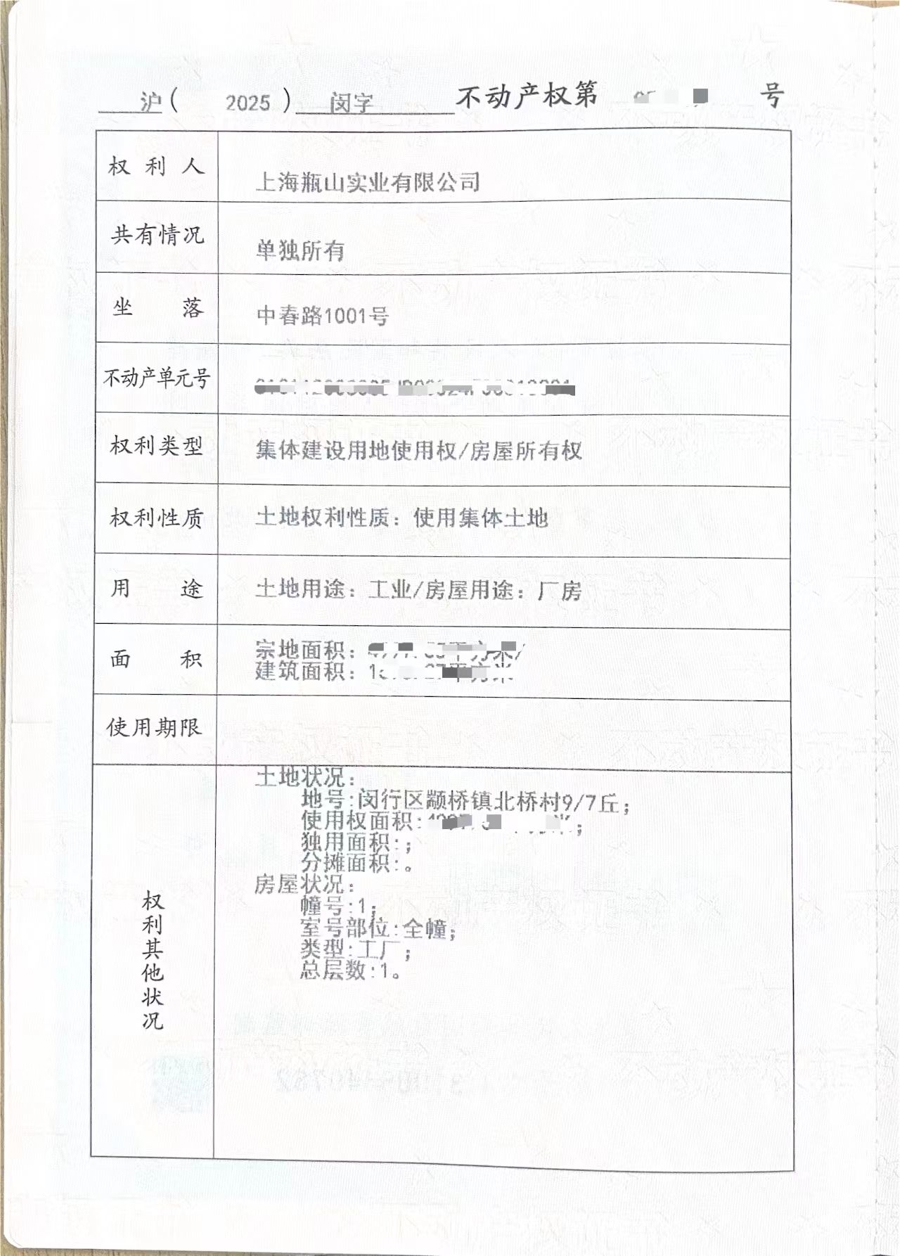 沪( 2025 ) 闵字 不动产权第 号
权利人 上海瓶山实业有限公司
共有情况 单独所有
坐落 中春路1001号
不动产单元号
权利类型 集体建设用地使用权/房屋所有权
权利性质 土地权利性质：使用集体土地
用途 土地用途：工业/房屋用途：厂房
面积 宗地面积： 平方米/
建筑面积： 平方米
使用期限
权利其他状况
土地状况：
地号:闵行区颛桥镇北桥村9/7丘；
使用权面积: 米；
独用面积:；
分摊面积:。
房屋状况：
幢号:1；
室号部位:全幢；
类型:工厂；
总层数:1。